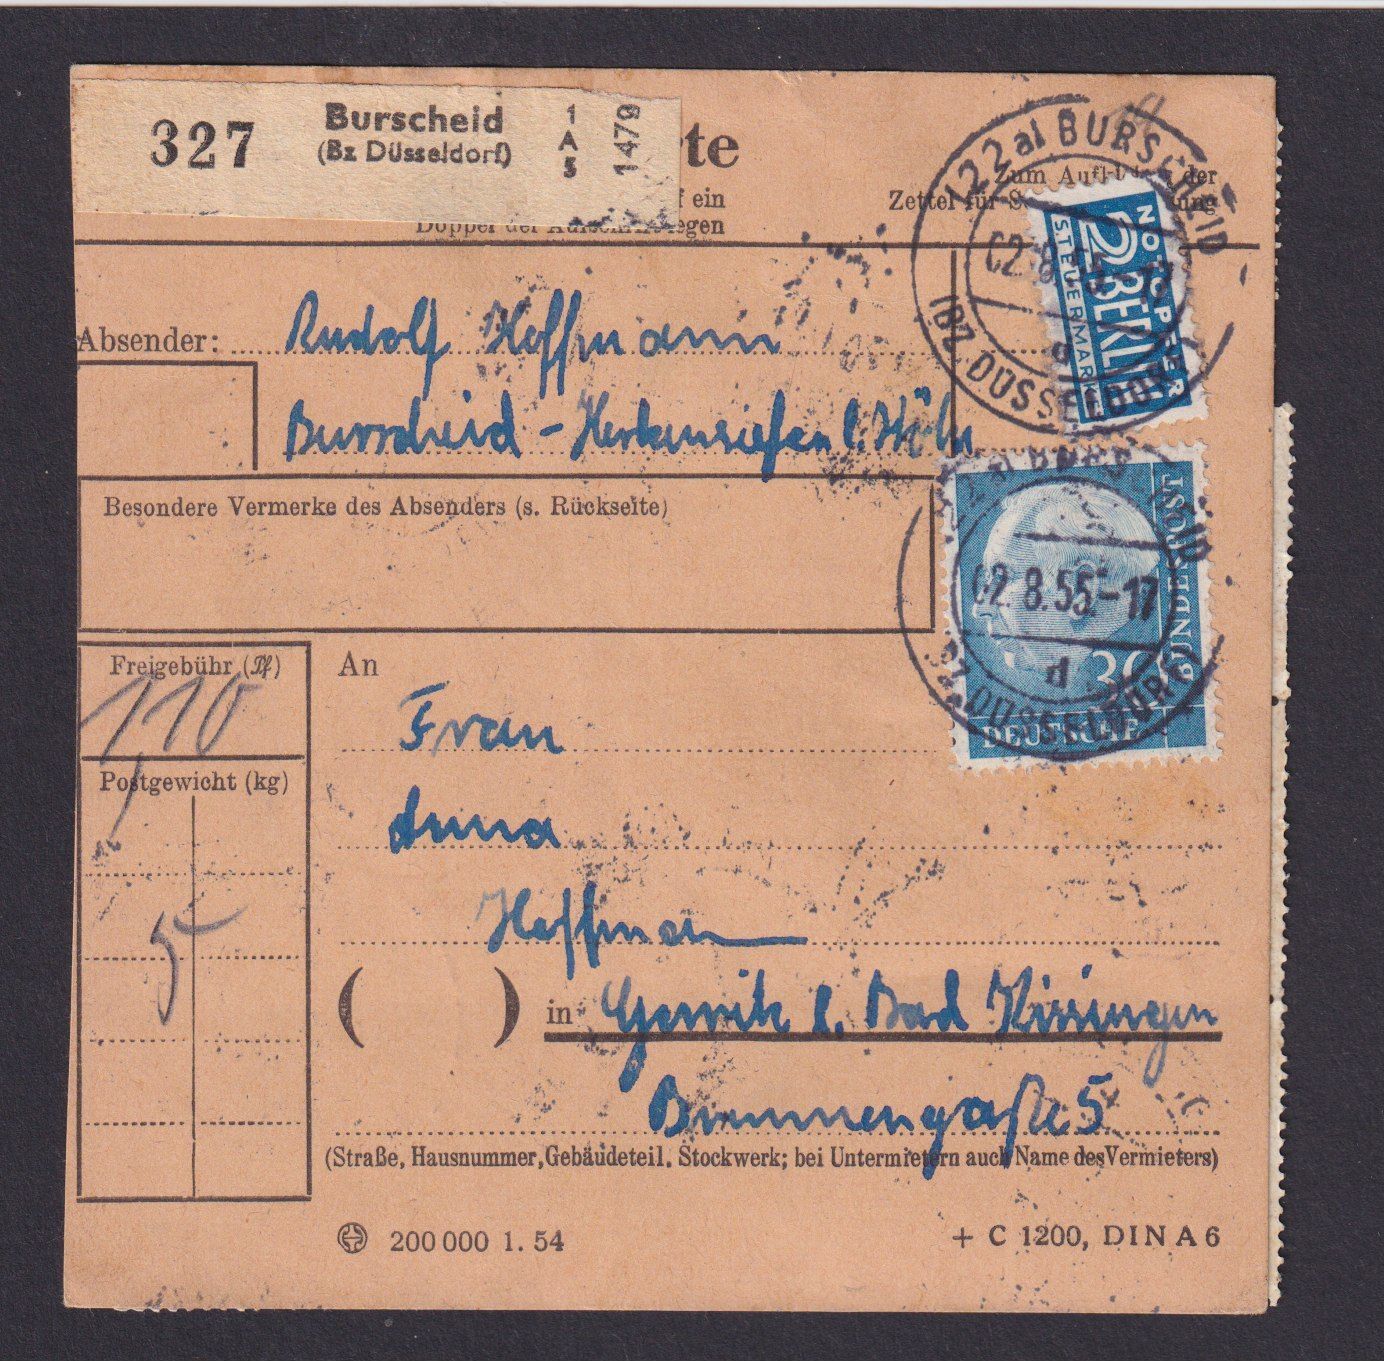 327 Burscheid 1
(Bz Düsseldorf) A
5
1479
rte
Zum Aufkleben der
Zettel für S ung
f ein
Doppel der Aufschrift legen
(22a) BURSCHEID
02.8.55.-17
d
(BZ. DÜSSELDORF)
NOTOPFER
2 BERLIN
STEUERMARKE
Absender: Rudolf Hoffmann
Burscheid - Herkensiefen b. Köln
Besondere Vermerke des Absenders (s. Rückseite)
(22a) BURSCHEID
02.8.55.-17
d
BZ. DÜSSELDORF
30
DEUTSCHE
BUNDESPOST
Freigebühr (Pf)
110
Postgewicht (kg)
5
An
Frau
Anna
Hoffmann
( ) in b. Bad Kissingen
Brunnengaße 5
(Straße, Hausnummer, Gebäudeteil, Stockwerk; bei Untermietern auch Name des Vermieters)
200 000 1. 54
+ C 1200, DIN A 6